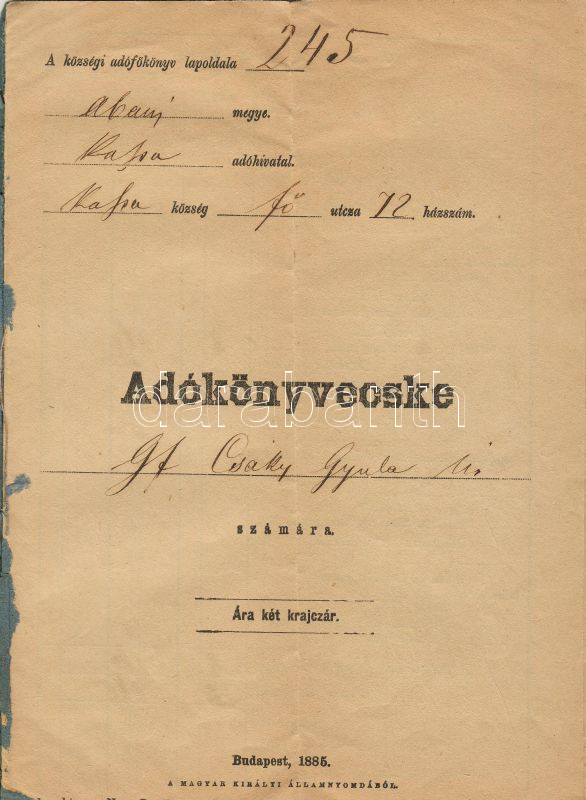 A községi adófőkönyv lapoldala 245
Abauj megye.
Kassa adóhivatal.
Kassa község fő utcza 72 házszám.
Adókönyvecske
darabanth
Gf Csáky Gyula úr
számára.
Ára két krajczár.
Budapest, 1885.
A MAGYAR KIRÁLYI ÁLLAMNYOMDÁBÓL.